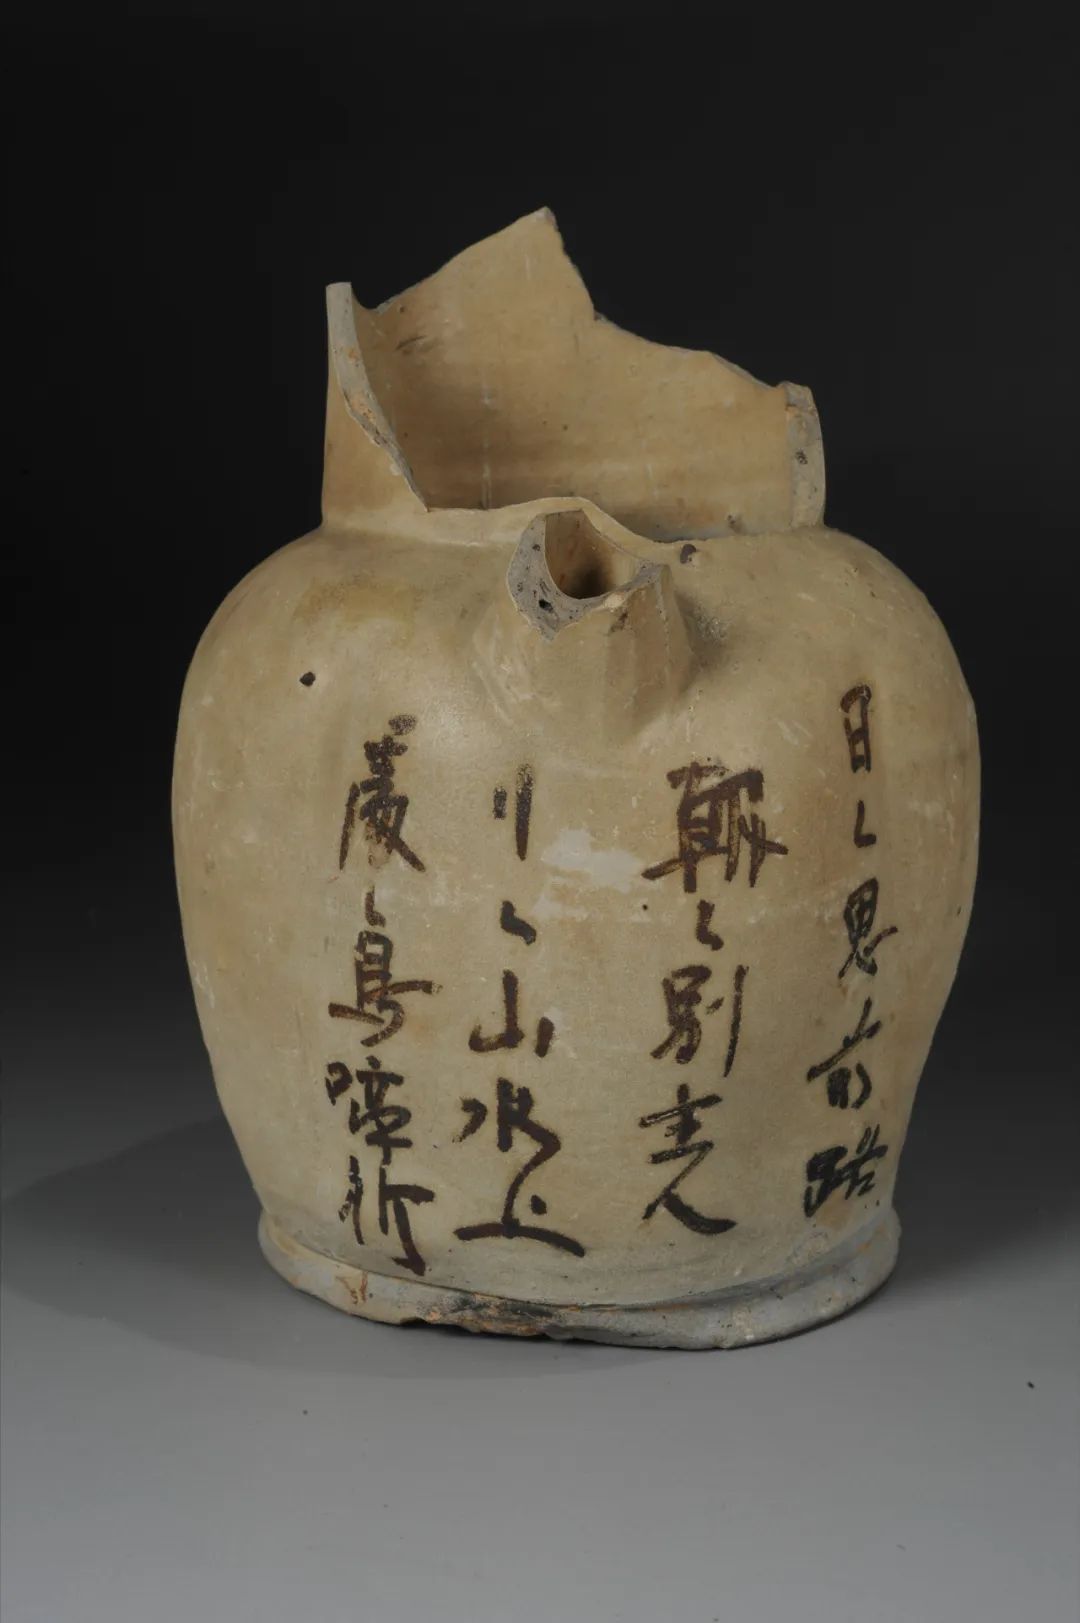 日〻思前路
朝〻別主人
行〻山水上
處〻鳥啼新